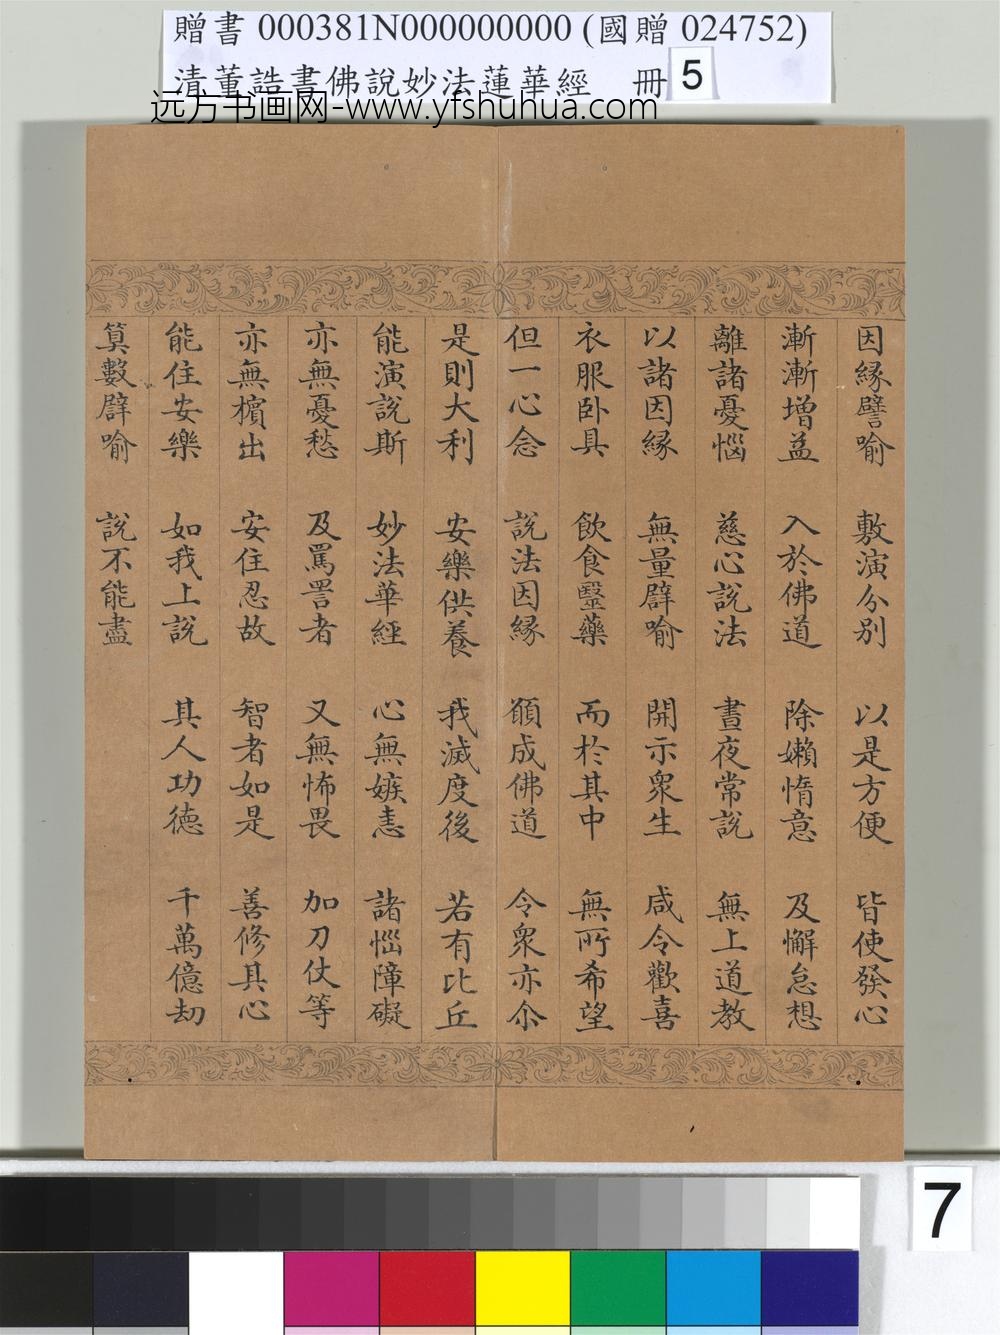 贈書 000381N000000000 (國贈 024752)
清董誥書佛說妙法蓮華經 冊 5
远方书画网-www.yfshuhua.com
因緣譬喻 敷演分別 以是方便 皆使發心
漸漸增益 入於佛道 除嬾惰意 及懈怠想
離諸憂惱 慈心說法 晝夜常說 無上道教
以諸因緣 無量譬喻 開示眾生 咸令歡喜
衣服卧具 飲食醫藥 而於其中 無所希望
但一心念 說法因緣 願成佛道 令眾亦尒
是則大利 安樂供養 我滅度後 若有比丘
能演說斯 妙法華經 心無嫉恚 諸惱障礙
亦無憂愁 及罵詈者 又無怖畏 加刀仗等
亦無擯出 安住忍故 智者如是 善修其心
能住安樂 如我上說 其人功德 千萬億劫
算數譬喻 說不能盡
7